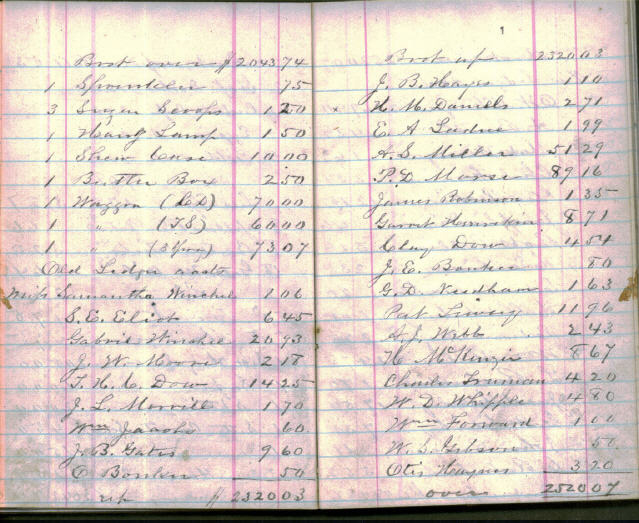 Brot over $ 2043 74
1 Sprinkler 75
3 Sugar Scoops 1 20
1 Hang Lamp 1 50
1 Show Case 10 00
1 Butter Box 2 50
1 Waggon (LD) 70 00
1 " (TS) 60 00
1 " (3 Spring) 73 07
Old Ledger accts
Miss Samantha Winchel 1 06
S. E. Eliot 6 45
Gabriel Winchel 20 93
J. W. Moore 2 18
T. H. C. Dow 14 25
J. L. Morrill 1 70
Wm Jacobs 60
J. B. Gates 9 60
O Bonker 50
$ 2320 03
1
Brot up 2320 03
J. B. Hayes 1 10
H. M. Daniels 2 71
E. A. Ladue 1 99
A. S. Miller 51 29
P. D. Morse 89 16
James Robinson 1 35
Garret 8 71
Clay Dow 4 54
J. E. Bonker 80
G. D. Needham 1 63
Pat 11 96
A. J. Webb 2 43
H McKenzie 8 67
Charles Truman 4 20
W. D. Whipple 4 80
Wm Forward 1 00
W. S. Gibson 50
Otis Haynes 3 20
over 2520 07